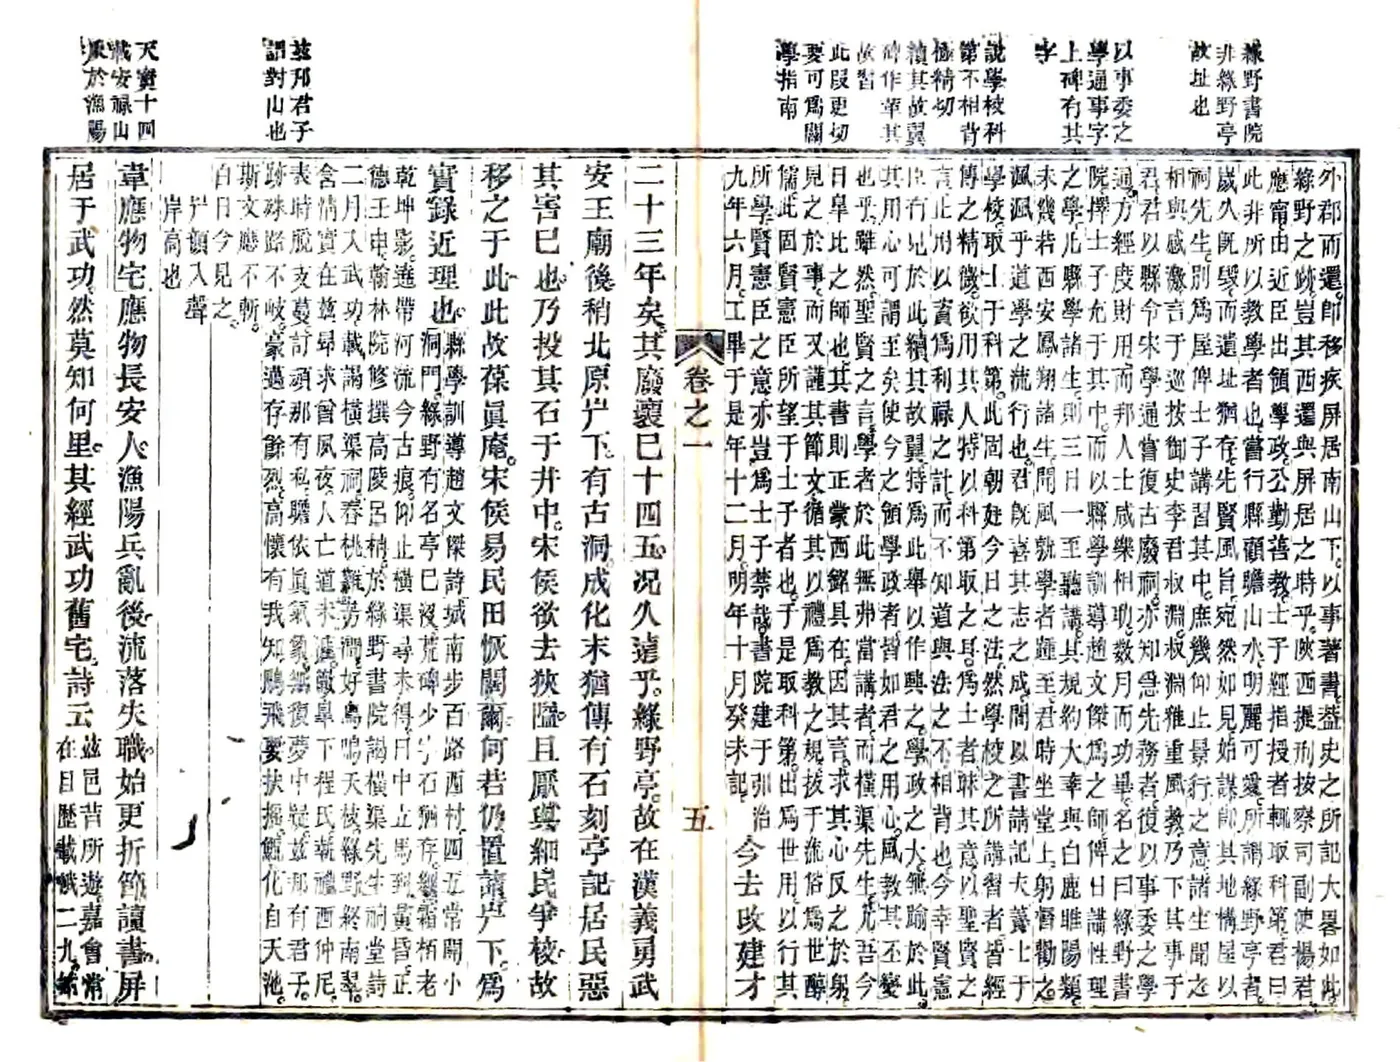 綠野書院
非綠野亭
故址也
以事委之
學通事字
上碑有其
字
說學校科
第不相背
極精切
續其故翼
碑作革其
故習
此段更切
要可爲關
學指南
外郡而還卽移疾屏居南山下以事著書益史之所記大畧如此
綠野之跡豈其西還與屏居之時乎陝西提刑按察司副使楊君
應甯由近臣出領學政公勤善教士子經指授者輒取科第君曰
此非所以教學者也當行縣顧瞻山水明麗可愛所謂綠野亭者
歲久旣毀而遺址猶存先賢風旨宛然如見始謀卽其地構屋以
祠先生別爲屋俾士子講習其中庶幾仰止景行之意諸生聞之
相與感激言于巡按御史李君叔淵叔淵雅重風教乃下其事于
君君以縣令宋學通嘗復古廢祠亦知急先務者復以事委之學
通方經度財用而邦人士咸樂相功數月而功畢名之曰綠野書
院擇士子充于其中而以縣學訓導趙文傑爲之師俾日講性理
之學凡縣學諸生則三日一至聽講其規約大率與白鹿睢陽類
未幾若西安鳳翔諸生聞風就學者踵至君時坐堂上躬督勸之
渢渢乎道學之流行也君旣喜其志之成間以書請記夫養士于
學校取士于科第此固朝廷今日之法然學校之所講習者皆經
傳之精微欲用其人特以科第取之耳爲士者昧其意以聖賢之
言止用以資爲利祿之計而不知道與法之不相背也今幸賢憲
臣有見於此續其故翼特爲此舉以作興之學政之大無踰於此
其用心可謂至矣使今之領學政者皆如君之用心風教其丕變
也乎雖然聖賢之言學者於此無弗當講者而橫渠先生尤吾今
日臯比之師也其書則正蒙西銘具在因其言求其心反之於躬
見之於事而又謹其節文循其以禮爲教之規拔于流俗爲世醇
儒此固賢憲臣所望于士子者也于是取科第出爲世用以行其
所學賢憲臣之意亦豈爲士子禁哉書院建于弘治
九年六月工畢于是年十二月明年十月癸未記
今去改建才
卷之一
五
茲邦君子
詔對山也
天寶十四
載安祿山
叛於漁陽
二十三年矣其廢壞已十四五况久遠乎綠野亭故在漢義勇武
安王廟後稍北原屵下有古洞成化末猶傳有石刻亭記居民惡
其害已也乃投其石于井中宋侯欲去狹隘且厭與細民爭棱故
移之于此此故葆眞庵宋侯易民田恢闢爾何若仍置諸屵下爲
實錄近理也
縣學訓導趙文傑詩城南步百路酉村四五常聞小
洞門綠野有名亭已沒荒碑少字石猶存緜霜栢老
乾坤影遶帶河流今古痕仰止橫渠尋未得日中立馬到黃昏正
德壬申翰林院修撰高陵呂柟於綠野書院謁橫渠先生祠堂詩
二月入武功載謁橫渠祠春桃雜芳澗好鳥鳴天枝綠野終南翠
含情實在茲昴求曾夙夜人亡道未漓皦臯下程氏蘄禮西仲尼
表時脫支蔓訂頑那有私瞻依眞氣象無復夢中疑茲邦有君子
跡殊路不岐豪邁存餘烈高懷有我知鵬飛要扶搖鯤化自天池
斯文應不斬
白日今見之
屵韻入聲
岸高也
韋應物宅應物長安人漁陽兵亂後流落失職始更折節讀書屏
居于武功然莫知何里其經武功舊宅詩云
茲邑昔所遊嘉會常
在目歷載俄二九